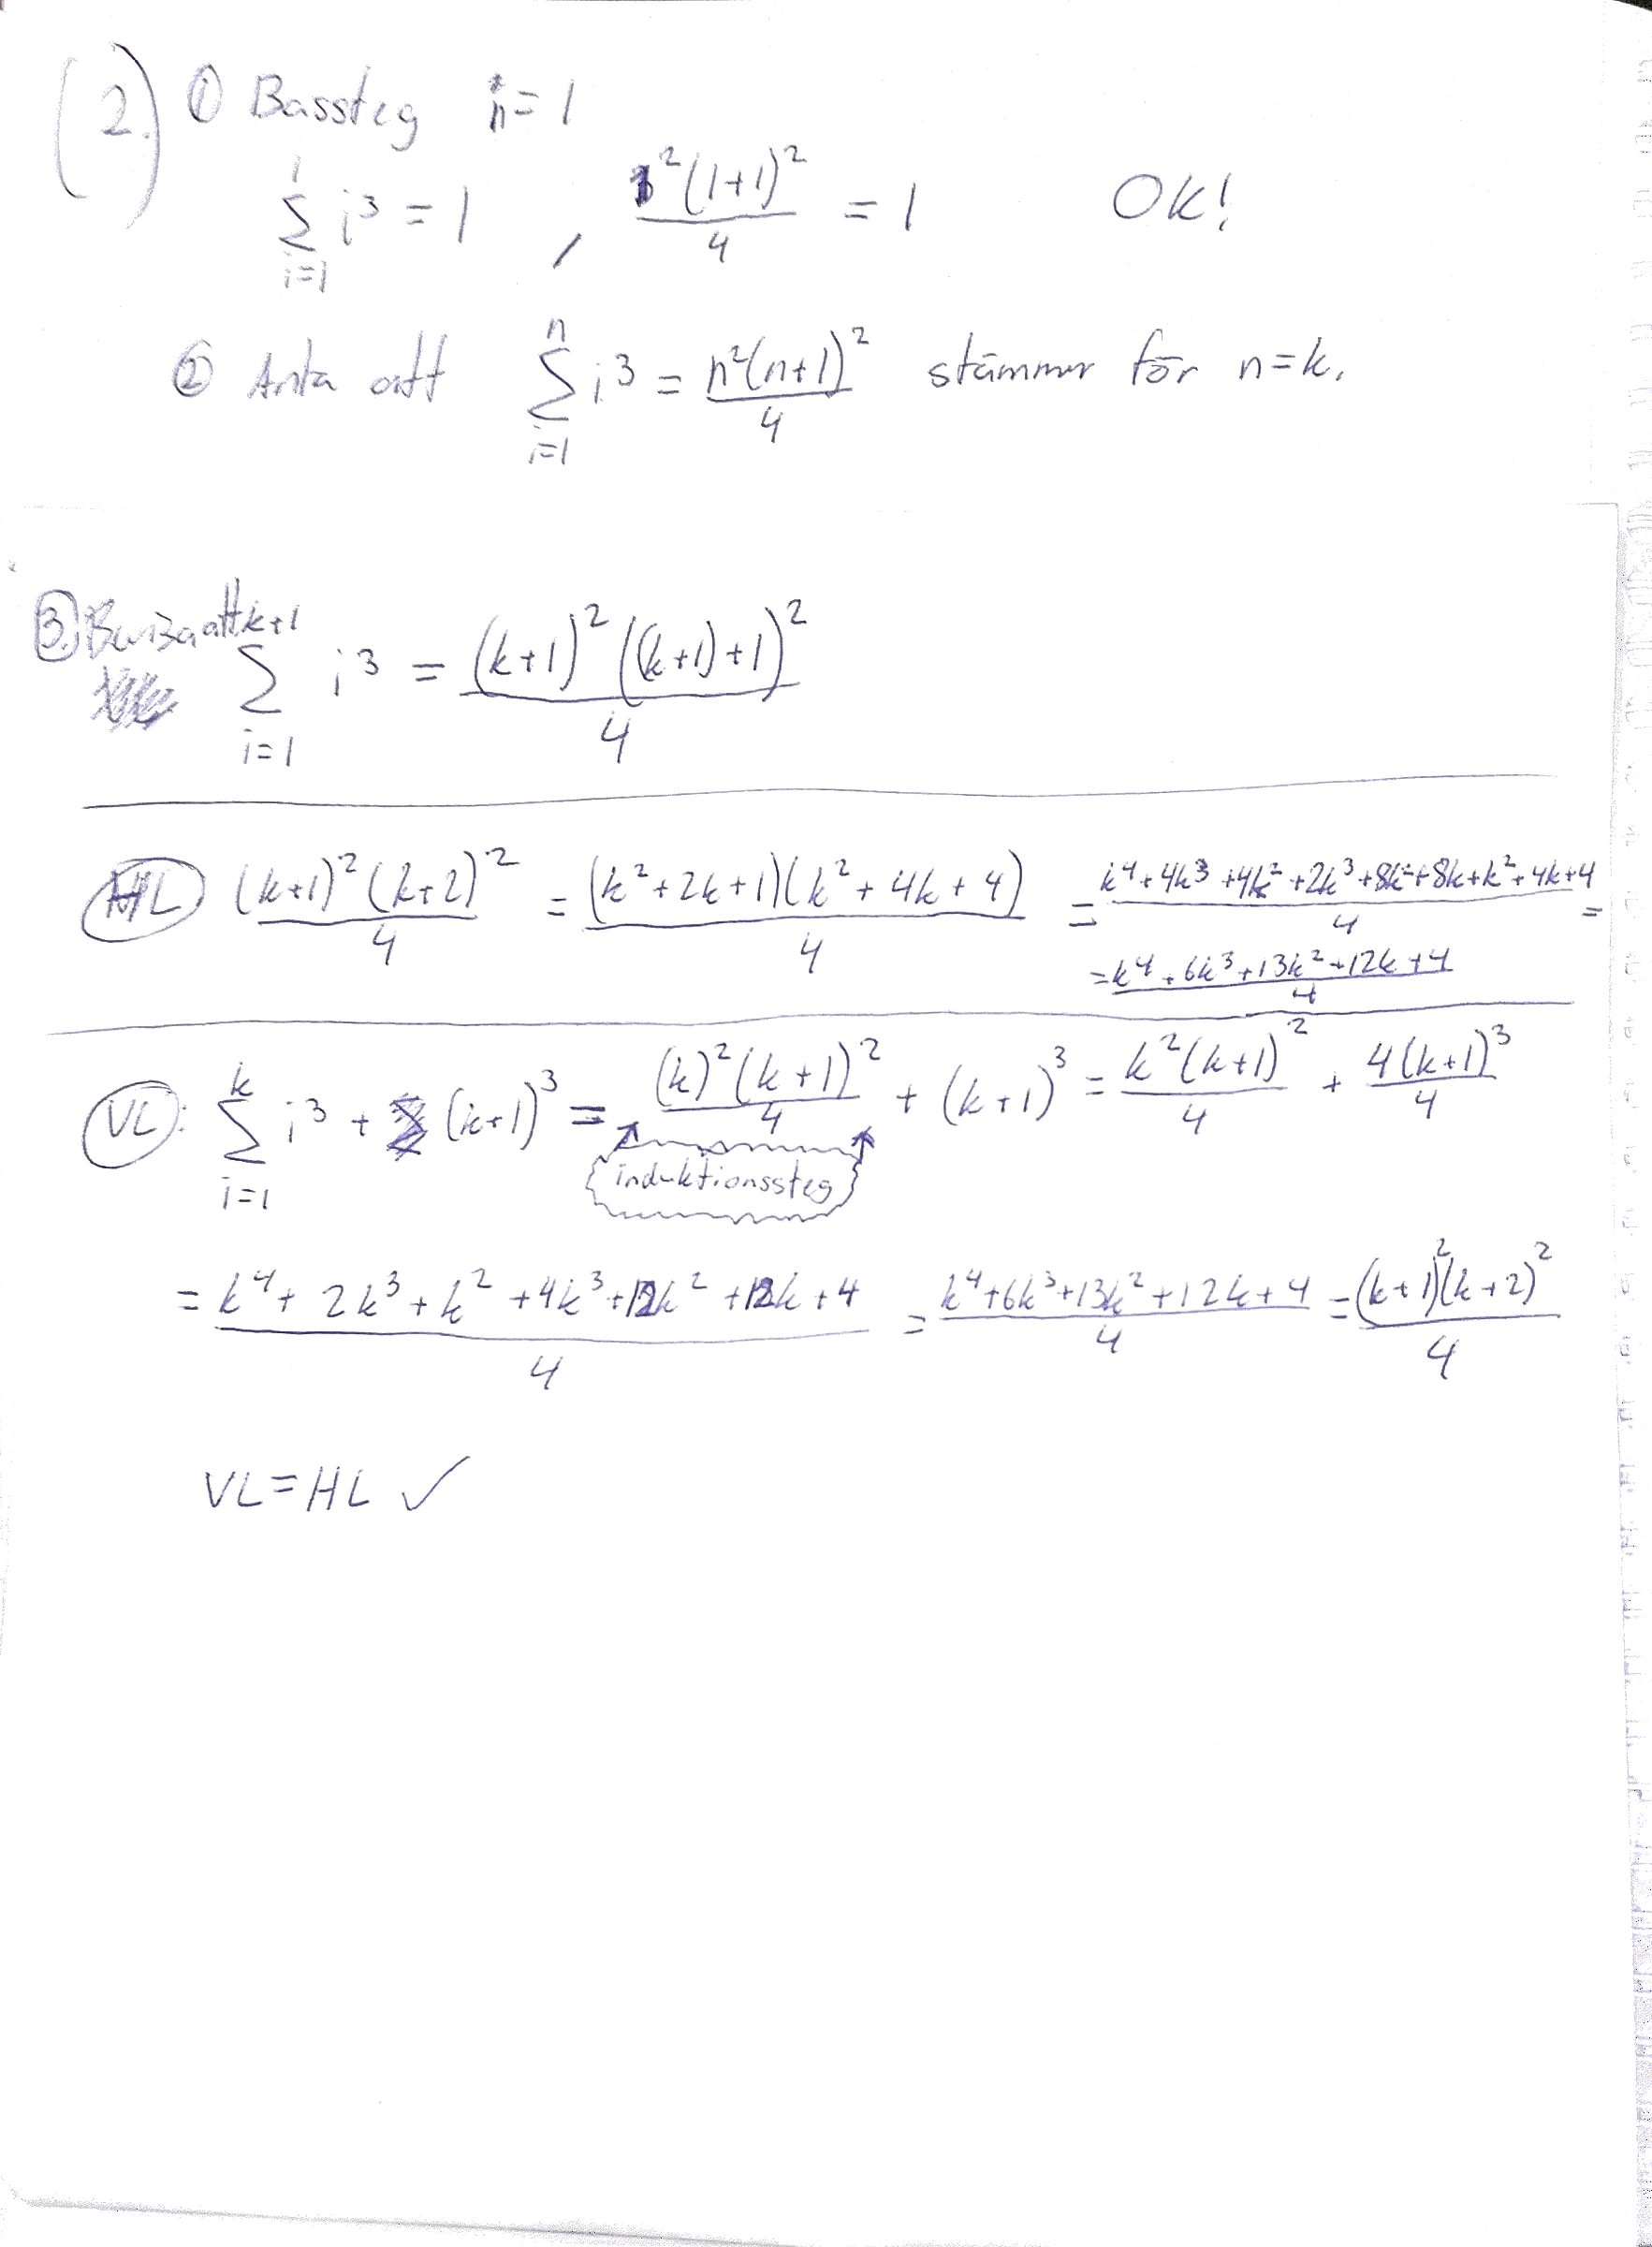 (2.) ① Bassteg n=1
1
∑ i³ = 1 , 1²(1+1)²/4 = 1 OK!
i=1
② Anta att n
∑ i³ = n²(n+1)²/4 stämmer för n=k.
i=1
③. Bevisa att k+1
∑ i³ = (k+1)²((k+1)+1)²/4
i=1
HL (k+1)²(k+2)²/4 = (k²+2k+1)(k²+4k+4)/4 = k⁴+4k³+4k²+2k³+8k²+8k+k²+4k+4/4 =
= k⁴+6k³+13k²+12k+4/4
VL: k
∑ i³ + (k+1)³ = (k)²(k+1)²/4 + (k+1)³ = k²(k+1)²/4 + 4(k+1)³/4
i=1
induktionssteg
= k⁴+2k³+k²+4k³+12k²+12k+4/4 = k⁴+6k³+13k²+12k+4/4 = (k+1)²(k+2)²/4
VL=HL ✓